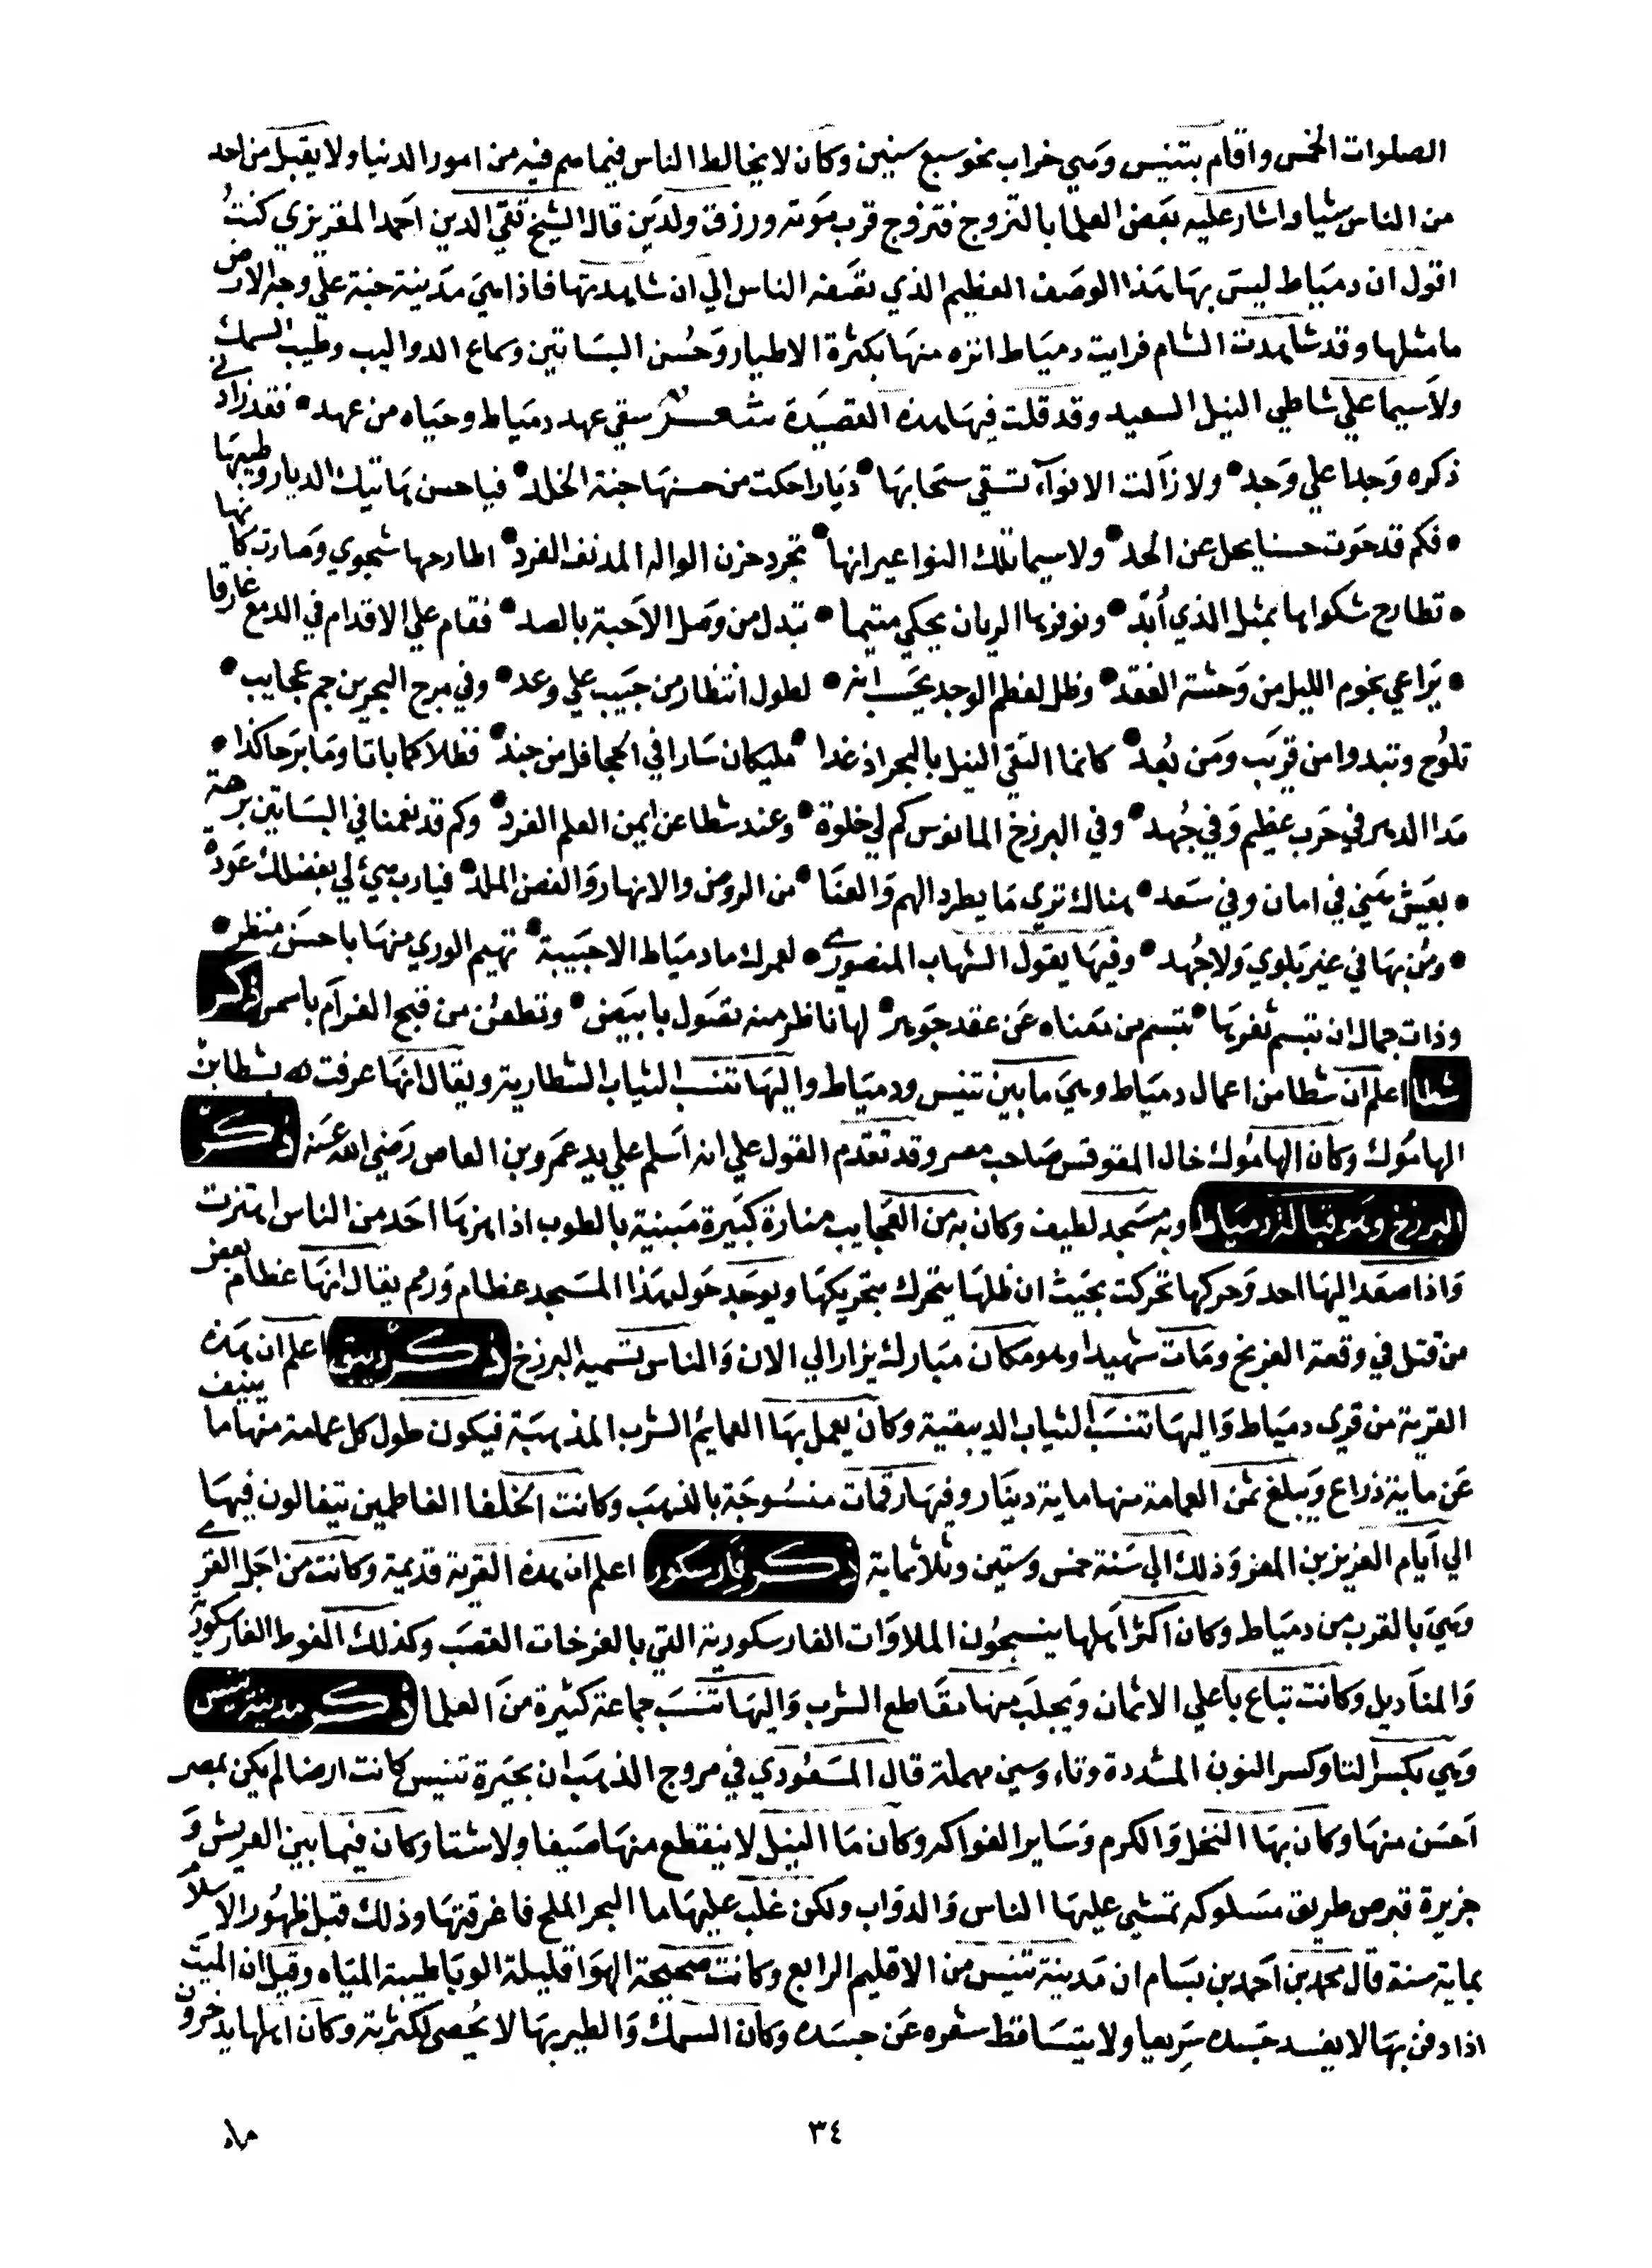 الصلوات الخمس واقام بتنيس وهي خراب نحو سبع سنين وكان لا يخالط الناس فيما هم فيه من امور الدنيا ولا يقبل من احد
من الناس شيا واشار عليه بعض العلما بالتزوج فتزوج قرب موته ورزق ولدين قال الشيخ تقي الدين احمد المقريزي كنت
اقول ان دمياط ليس بها هذا الوصف العظيم الذي تصفه الناس الي ان شاهدتها فاذا هي مدينة جنة علي وجه الارض
ما مثلها وقد شاهدت الشام فرايت دمياط انزه منها بكثرة الاطيار وحسن البساتين وسماع الدواليب وطيب السمك
ولاسيما علي شاطي النيل السعيد وقد قلت فيها هذه القصيدة شعر سقي عهد دمياط وحياه من عهد • فقد زادني
ذكره وجدا علي وجد • ولا زالت الانوآء تسقي سحابها • ديارا حكت من حسنها جنة الخلد • فيا حسن هاتيك الديار وطيبها
• فكم قد حوت حسنا يجل عن الحد • ولا سيما تلك النواعير انها • تجرد حزن الواله المدنف الفرد • اطارحها شجوي وصارت كانها
• تطارح شكواها بمثل الذي أبد • ونوفرها الريان يحكي متيما • تبدل من وصل الاحبة بالصد • فقام علي الاقدام في الدمع غارقا
• يراعي نجوم الليل من وحشة الفقد • وظل لعظم الوجد يحسب انه • لطول انتظار من حبيب علي وعد • وفي مرج البحرين جم عجايب •
تلوح وتبدوا من قريب ومن بعد • كانما التقي النيل بالبحر اذ غدا • مليكان سارا في الجحافل من جند • فظلا كما باتا وما برحا كذا •
مدا الدهر في حرب عظيم وفي جهد • وفي البرزخ المانوس كم لي خلوة • وعند شطا عن ايمن العلم الفرد • وكم قد نعمنا في البساتين برهة
• بعيش هني في امان وفي سعد • هناك تري ما يطرد الهم والعنا • من الروض والانهار والغصن الملد • فيارب هيئ لي بفضلك عودة
• ومن بها في غير بلوي ولا جهد • وفيها يقول الشهاب المنصوري • لعمرك ما دمياط الا حبيبة • تهيم الوري منها باحسن منظر •
وذات جمال ان تبسم ثغرها • تبسم من معناه عن عقد جوهر • لها ناظر منه تصول بابيض • وتطعن من قبح الغرام باسمر ذكر
شطا اعلم ان شطا من اعمال دمياط وهي ما بين تنيس ودمياط واليها تنسب الثياب الشطاريه ويقال انها عرفت بشطا بن
الهاموك وكان الهاموك خال المقوقس صاحب مصر وقد تقدم القول علي انه اسلم علي يد عمرو بن العاص رضي الله عنه ذكر
البرزخ وهو قبالة دمياط وبه مسجد لطيف وكان به من العجايب منارة كبيرة مبنية بالطوب اذا هزها احد من الناس اهتزت
واذا صعد اليها احد وحركها تحركت بحيث ان ظلها يتحرك بتحريكها ويوجد حول هذا المسجد عظام ورمم يقال انها عظام بعض
من قتل في وقعة الفرنج ومات شهيدا وهو مكان مبارك يزار الي الان والناس تسميه البرزخ ذكر دبيق اعلم ان هذه
القرية من قري دمياط واليها تنسب الثياب الدبيقية وكان يعمل بها العمايم الشرب المذهبة فيكون طول كل عمامة منها ما ينيف
عن ماية ذراع ويبلغ ثمن العمامة منها ماية دينار وفيها رقمات منسوجة بالذهب وكانت الخلفا الفاطمين يتغالون فيها
الي ايام العزيز بن المعز وذلك الي سنة خمس وستين وثلاثماية ذكر فارسكور اعلم ان هذه القرية قديمة وكانت من اجل القري
وهي بالقرب من دمياط وكان اكثر اهلها ينسجون الملاوات الفارسكورية التي بالفرخات القصب وكذلك الفوط الفارسكورية
والمناديل وكانت تباع باعلي الاثمان ويجلب منها مقاطع الشرب واليها تنسب جماعة كثيرة من العلما ذكر مدينة تنيس
وهي بكسر التا وكسر النون المشددة وتاء وسين مهملة قال المسعودي في مروج الذهب ان بحيرة تنيس كانت ارضا لم يكن بمصر
احسن منها وكان بها النخل والكرم وساير الفواكه وكان ما النيل لا ينقطع منها صيفا ولا شتا وكان فيما بين العريش و
جزيرة قبرص طريق مسلوكه تمشي عليها الناس والدواب ولكن غلب عليها ما البحر الملح فاغرقتها وذلك قبل ظهور الاسلام
بماية سنة قال محمد بن احمد بن بسام ان مدينة تنيس من الاقليم الرابع وكانت صحيحة الهوا قليلة الوبا طيبة المياه وقيل ان الميت
اذا دفن بها لا يفسد جسده سريعا ولا يتساقط شعره عن جسده وكان السمك والطير بها لا يحصي لكثرته وكان اهلها يدخرون
٣٤
ماء